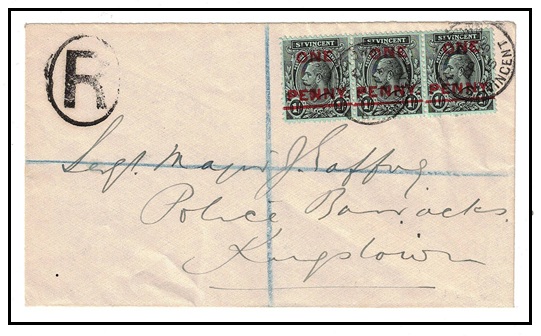 R
ST VINCENT ST VINCENT ST VINCENT
ONE ONE ONE
PENNY PENNY PENNY
VINCENT
Sergt. Major J.
Police Barracks
Kingstown